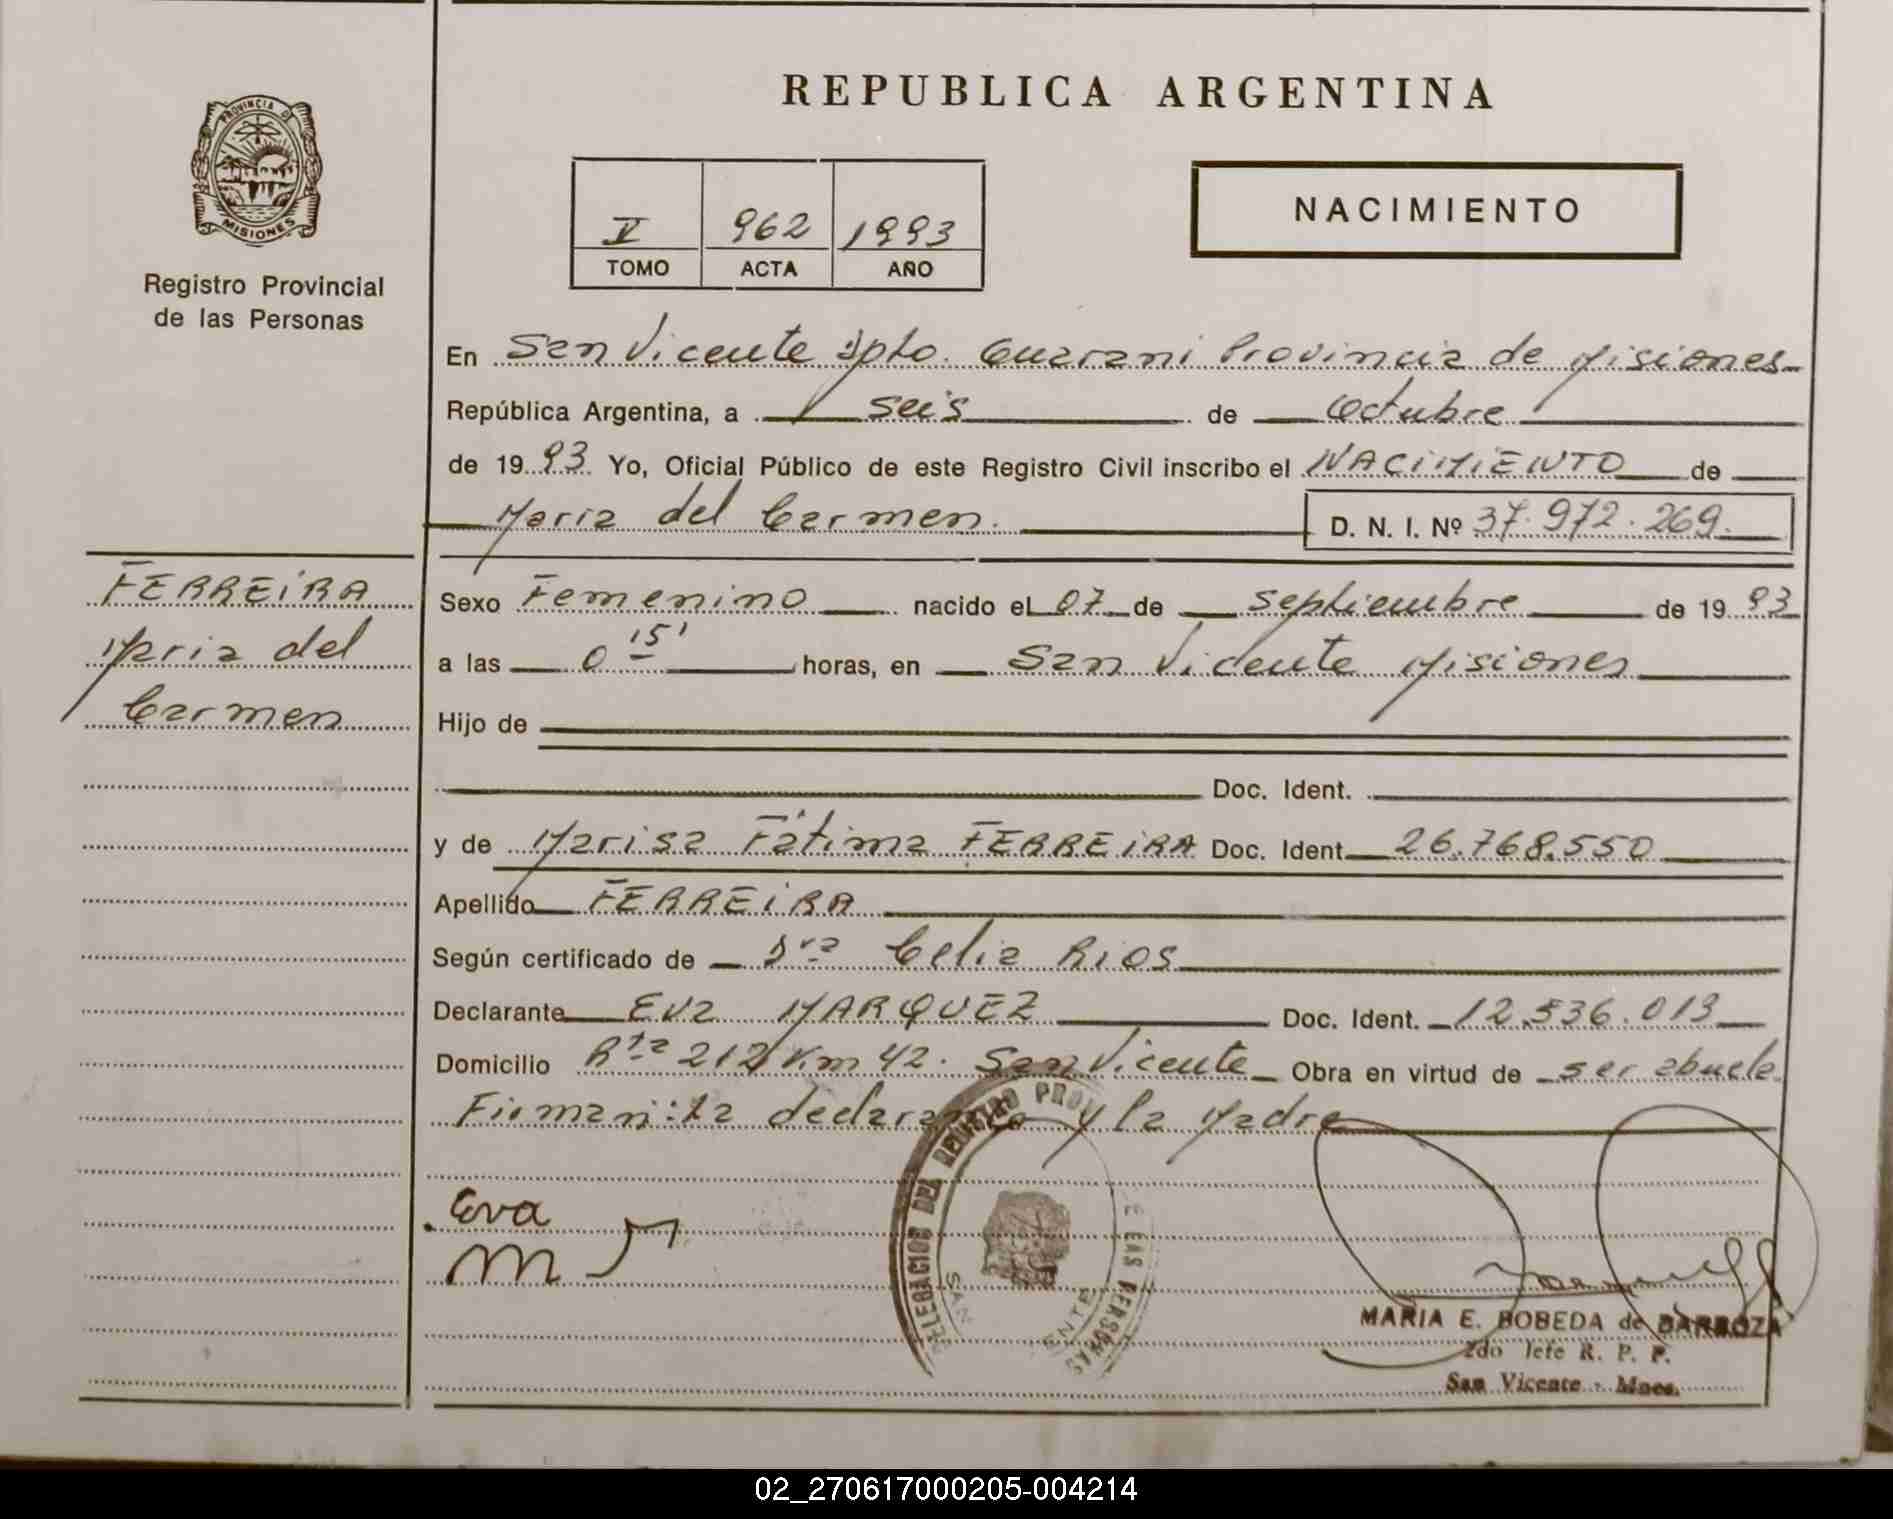 REPUBLICA ARGENTINA
PROVINCIA DE
MISIONES
Registro Provincial
de las Personas
V 962 1993
TOMO ACTA AÑO
NACIMIENTO
En San Vicente Dpto. Guarani Provincia de Misiones
República Argentina, a seis de Octubre
de 1993 Yo, Oficial Público de este Registro Civil inscribo el NACIMIENTO de
Maria del Carmen. D. N. I. Nº 37.972.269.
FERREIRA
Maria del
Carmen
Sexo Femenino nacido el 07 de Septiembre de 1993
a las 0 15' horas, en San Vicente Misiones
Hijo de
Doc. Ident.
y de Marisa Fátima FERREIRA Doc. Ident 26.768.550
Apellido FERREIRA
Según certificado de Dra Celia Rios
Declarante Eva MARQUEZ Doc. Ident. 12.536.013
Domicilio Rta 212 Km 42. San Vicente Obra en virtud de ser abuela
Firman: la declarante y la Madre
Eva
M
DELEGACION DEL REGISTRO PROV
DE LAS PERSONAS
SAN ENTE
MARIA E. BOBEDA de BARBOZA
2do Jefe R. P. P.
San Vicente - Mnes.
02_270617000205-004214